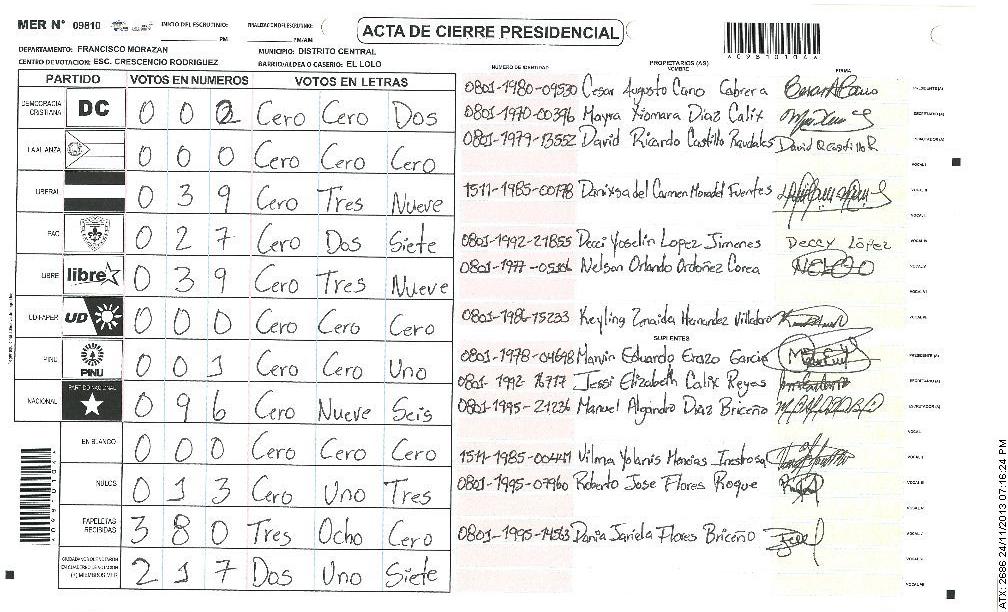 MER Nº 09810
INICIO DEL ESCRUTINIO: PM
FINALIZACION DEL ESCRUTINIO: PM/AM
ACTA DE CIERRE PRESIDENCIAL
A09810104A
DEPARTAMENTO: FRANCISCO MORAZAN
MUNICIPIO: DISTRITO CENTRAL
CENTRO DE VOTACION: ESC. CRESCENCIO RODRIGUEZ
BARRIO/ALDEA O CASERIO: EL LOLO
PARTIDO VOTOS EN NUMEROS VOTOS EN LETRAS
DEMOCRACIA CRISTIANA DC 0 0 2 Cero Cero Dos
LA ALIANZA 0 0 0 Cero Cero Cero
LIBERAL 0 3 9 Cero Tres Nueve
PAC 0 2 7 Cero Dos Siete
LIBRE libre 0 3 9 Cero Tres Nueve
UD-FAPER UD 0 0 0 Cero Cero Cero
PINU PINU 0 0 1 Cero Cero Uno
NACIONAL PARTIDO NACIONAL 0 9 6 Cero Nueve Seis
EN BLANCO 0 0 0 Cero Cero Cero
NULOS 0 1 3 Cero Uno Tres
PAPELETAS RECIBIDAS 3 8 0 Tres Ocho Cero
(+) MIEMBROS MER 2 1 7 Dos Uno Siete
NUMERO DE IDENTIDAD PROPIETARIOS (AS) NOMBRE FIRMA
0801-1980-09530 Cesar Augusto Cano Cabrera PRESIDENTE(A)
0801-1970-00396 Mayra Xiomara Diaz Calix SECRETARIO(A)
0801-1979-13552 David Ricardo Castillo Raudales David R Castillo R ESCRUTADOR(A)
VOCAL I
1511-1985-00178 Danixsa del Carmen Moradel Fuentes VOCAL II
VOCAL III
0801-1992-21855 Decci Yoselin Lopez Jimenes Deccy López VOCAL IV
0801-1977- Nelson Orlando Ordoñez Corea NELSO VOCAL V
VOCAL VI
0801-1986-15233 Keyling Zonaida Hernandez VOCAL VII
SUPLENTES
0801-1978-04698 Marvin Eduardo Erazo Garcia PRESIDENTE(A)
0801-1992-16717 Jessi Elizabeth Calix Reyes SECRETARIO(A)
0801-1995-21236 Manuel Alejandro Diaz Briceño ESCRUTADOR(A)
VOCAL I
1511-1985-00441 Vilma Yolanis Mencias Inestrosa VOCAL II
0801-1995-07960 Roberto Jose Flores Roque VOCAL III
VOCAL IV
0801-1995-14563 Dania Jariela Flores Briceño VOCAL V
VOCAL VI
VOCAL VII
ATX: 2686 24/11/2013 07:16:24 PM